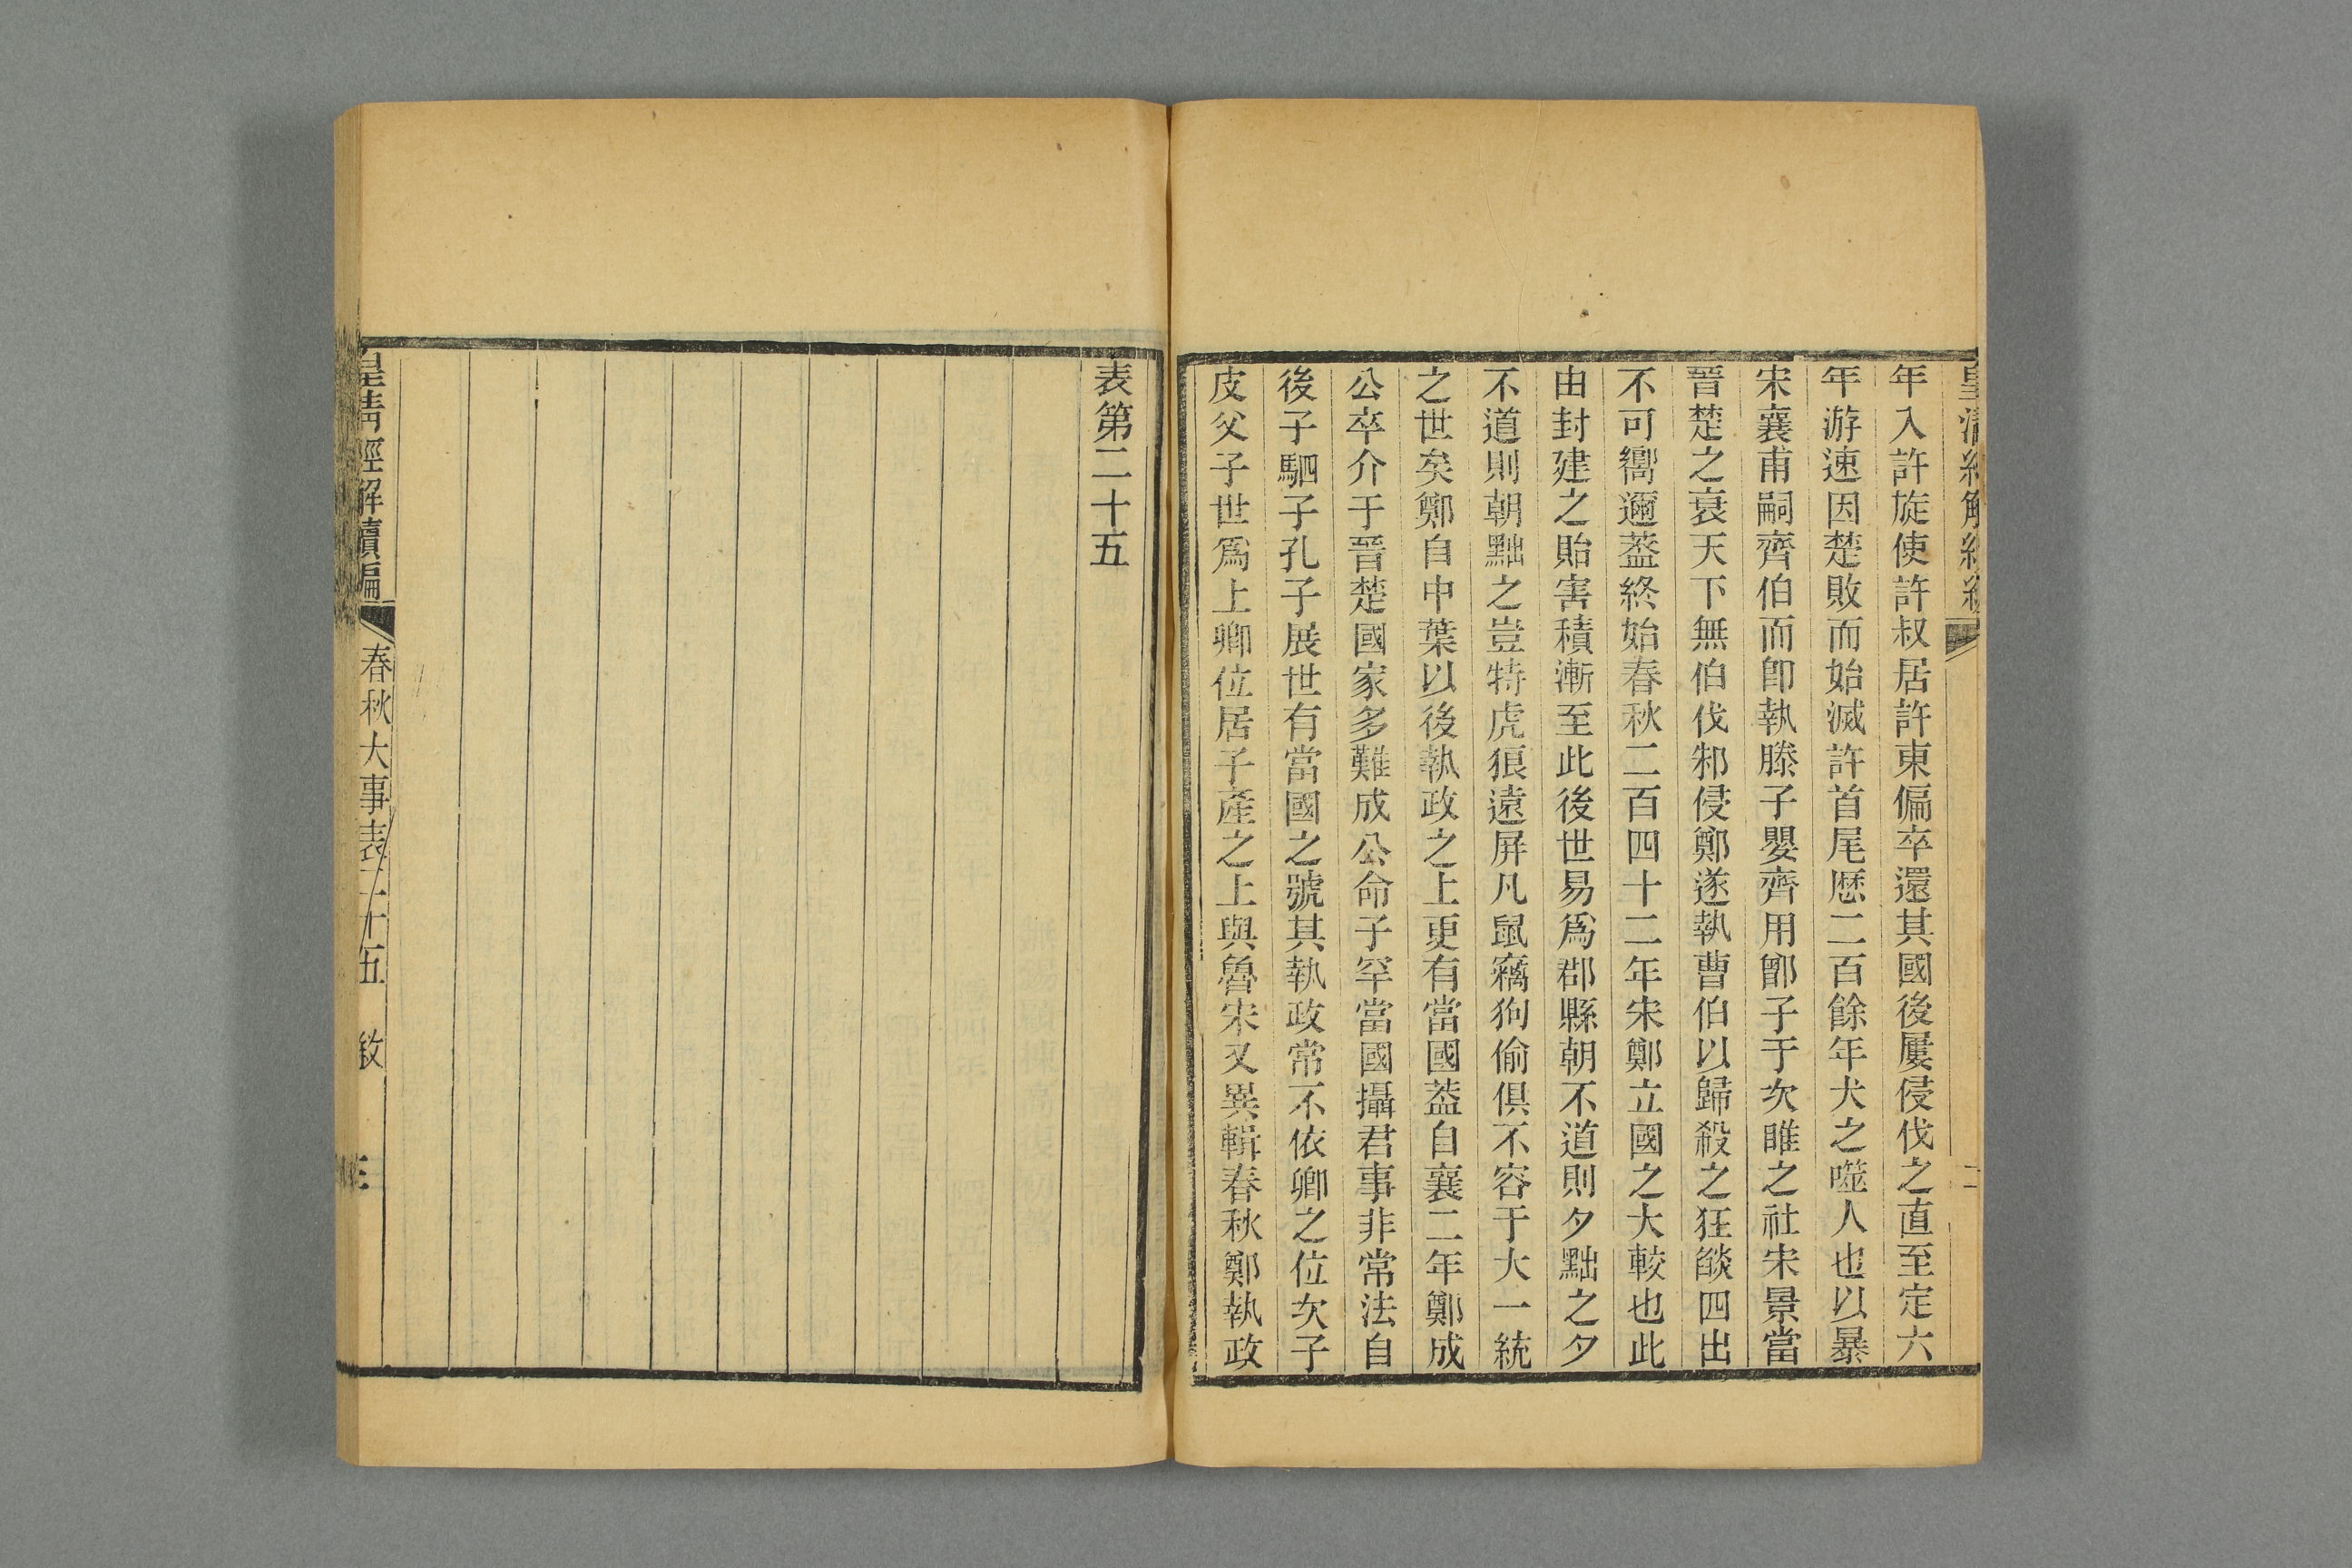 年入許旋使許叔居許東偏卒還其國後屢侵伐之直至定六
年游速因楚敗而始滅許首尾厯二百餘年犬之噬人也以暴
宋襄甫嗣齊伯而卽執滕子嬰齊用鄫子于次睢之社宋景當
晉楚之衰天下無伯伐邾侵鄭遂執曹伯以歸殺之狂燄四出
不可嚮邇葢終始春秋二百四十二年宋鄭立國之大較也此
由封建之貽害積漸至此後世易爲郡縣朝不道則夕黜之夕
不道則朝黜之豈特虎狼遠屏凡鼠竊狗偷俱不容于大一統
之世矣鄭自中葉以後執政之上更有當國葢自襄二年鄭成
公卒介于晉楚國家多難成公命子罕當國攝君事非常法自
後子駟子孔子展世有當國之號其執政常不依卿之位次子
皮父子世爲上卿位居子產之上與魯宋又異輯春秋鄭執政
表第二十五
皇清經解續編 春秋大事表二十五 敘 三